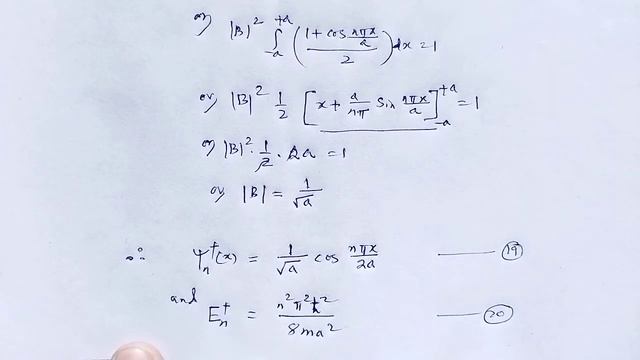 or |B|² ∫₋ₐ⁺ᵃ ( (1 + cos nπx/a) / 2 ) dx = 1
or |B|² 1/2 [ x + a/nπ sin nπx/a ]₋ₐ⁺ᵃ = 1
or |B|² · 1/2 · 2a = 1
or |B| = 1/√a
∴ ψₙ⁺(x) = 1/√a cos nπx/2a —— (19)
and Eₙ⁺ = n²π²ħ² / 8ma² —— (20)